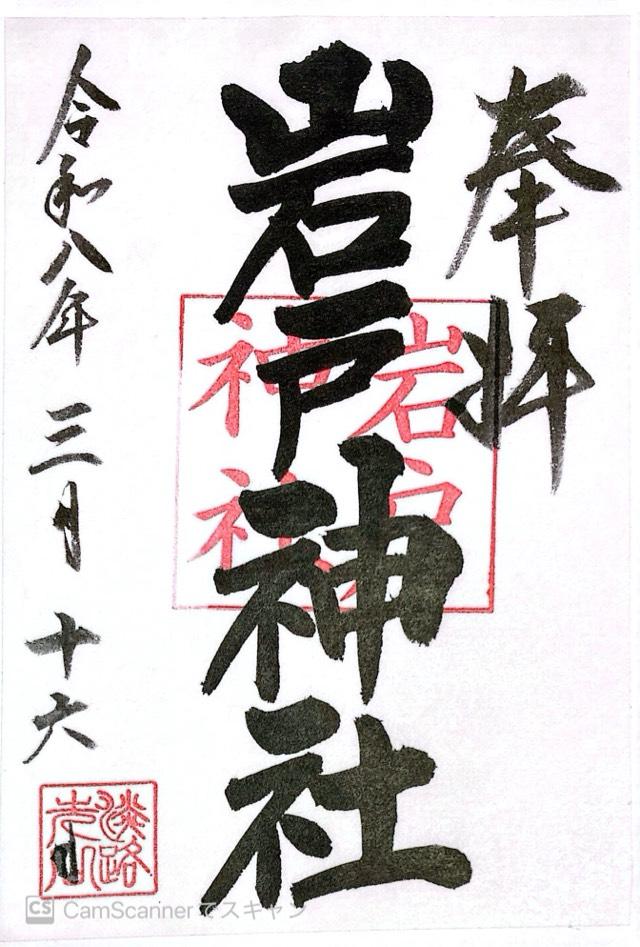 奉拝
岩戸神社
岩戸
神社
令和八年 三月 十六日
淡路
CS CamScannerでスキャン